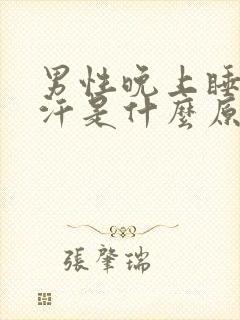 男性晚上睡
汗是什麼原
張肇瑞